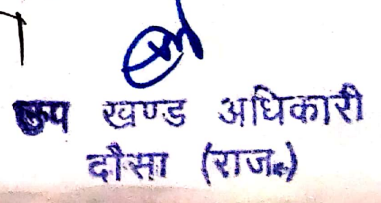 उप खण्ड अधिकारी
दौसा (राज०)